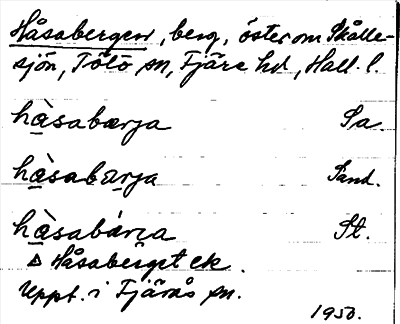 Håsabergen, berg, öster om Skålle-
sjön, Tölö sn, Fjäre hd, Hall. l.
hàsabærja Sa.
hàsabærja Sand.
hàsabárja St.
∆ Håsaberget ek.
Uppt. i Fjärås sn.
1950.